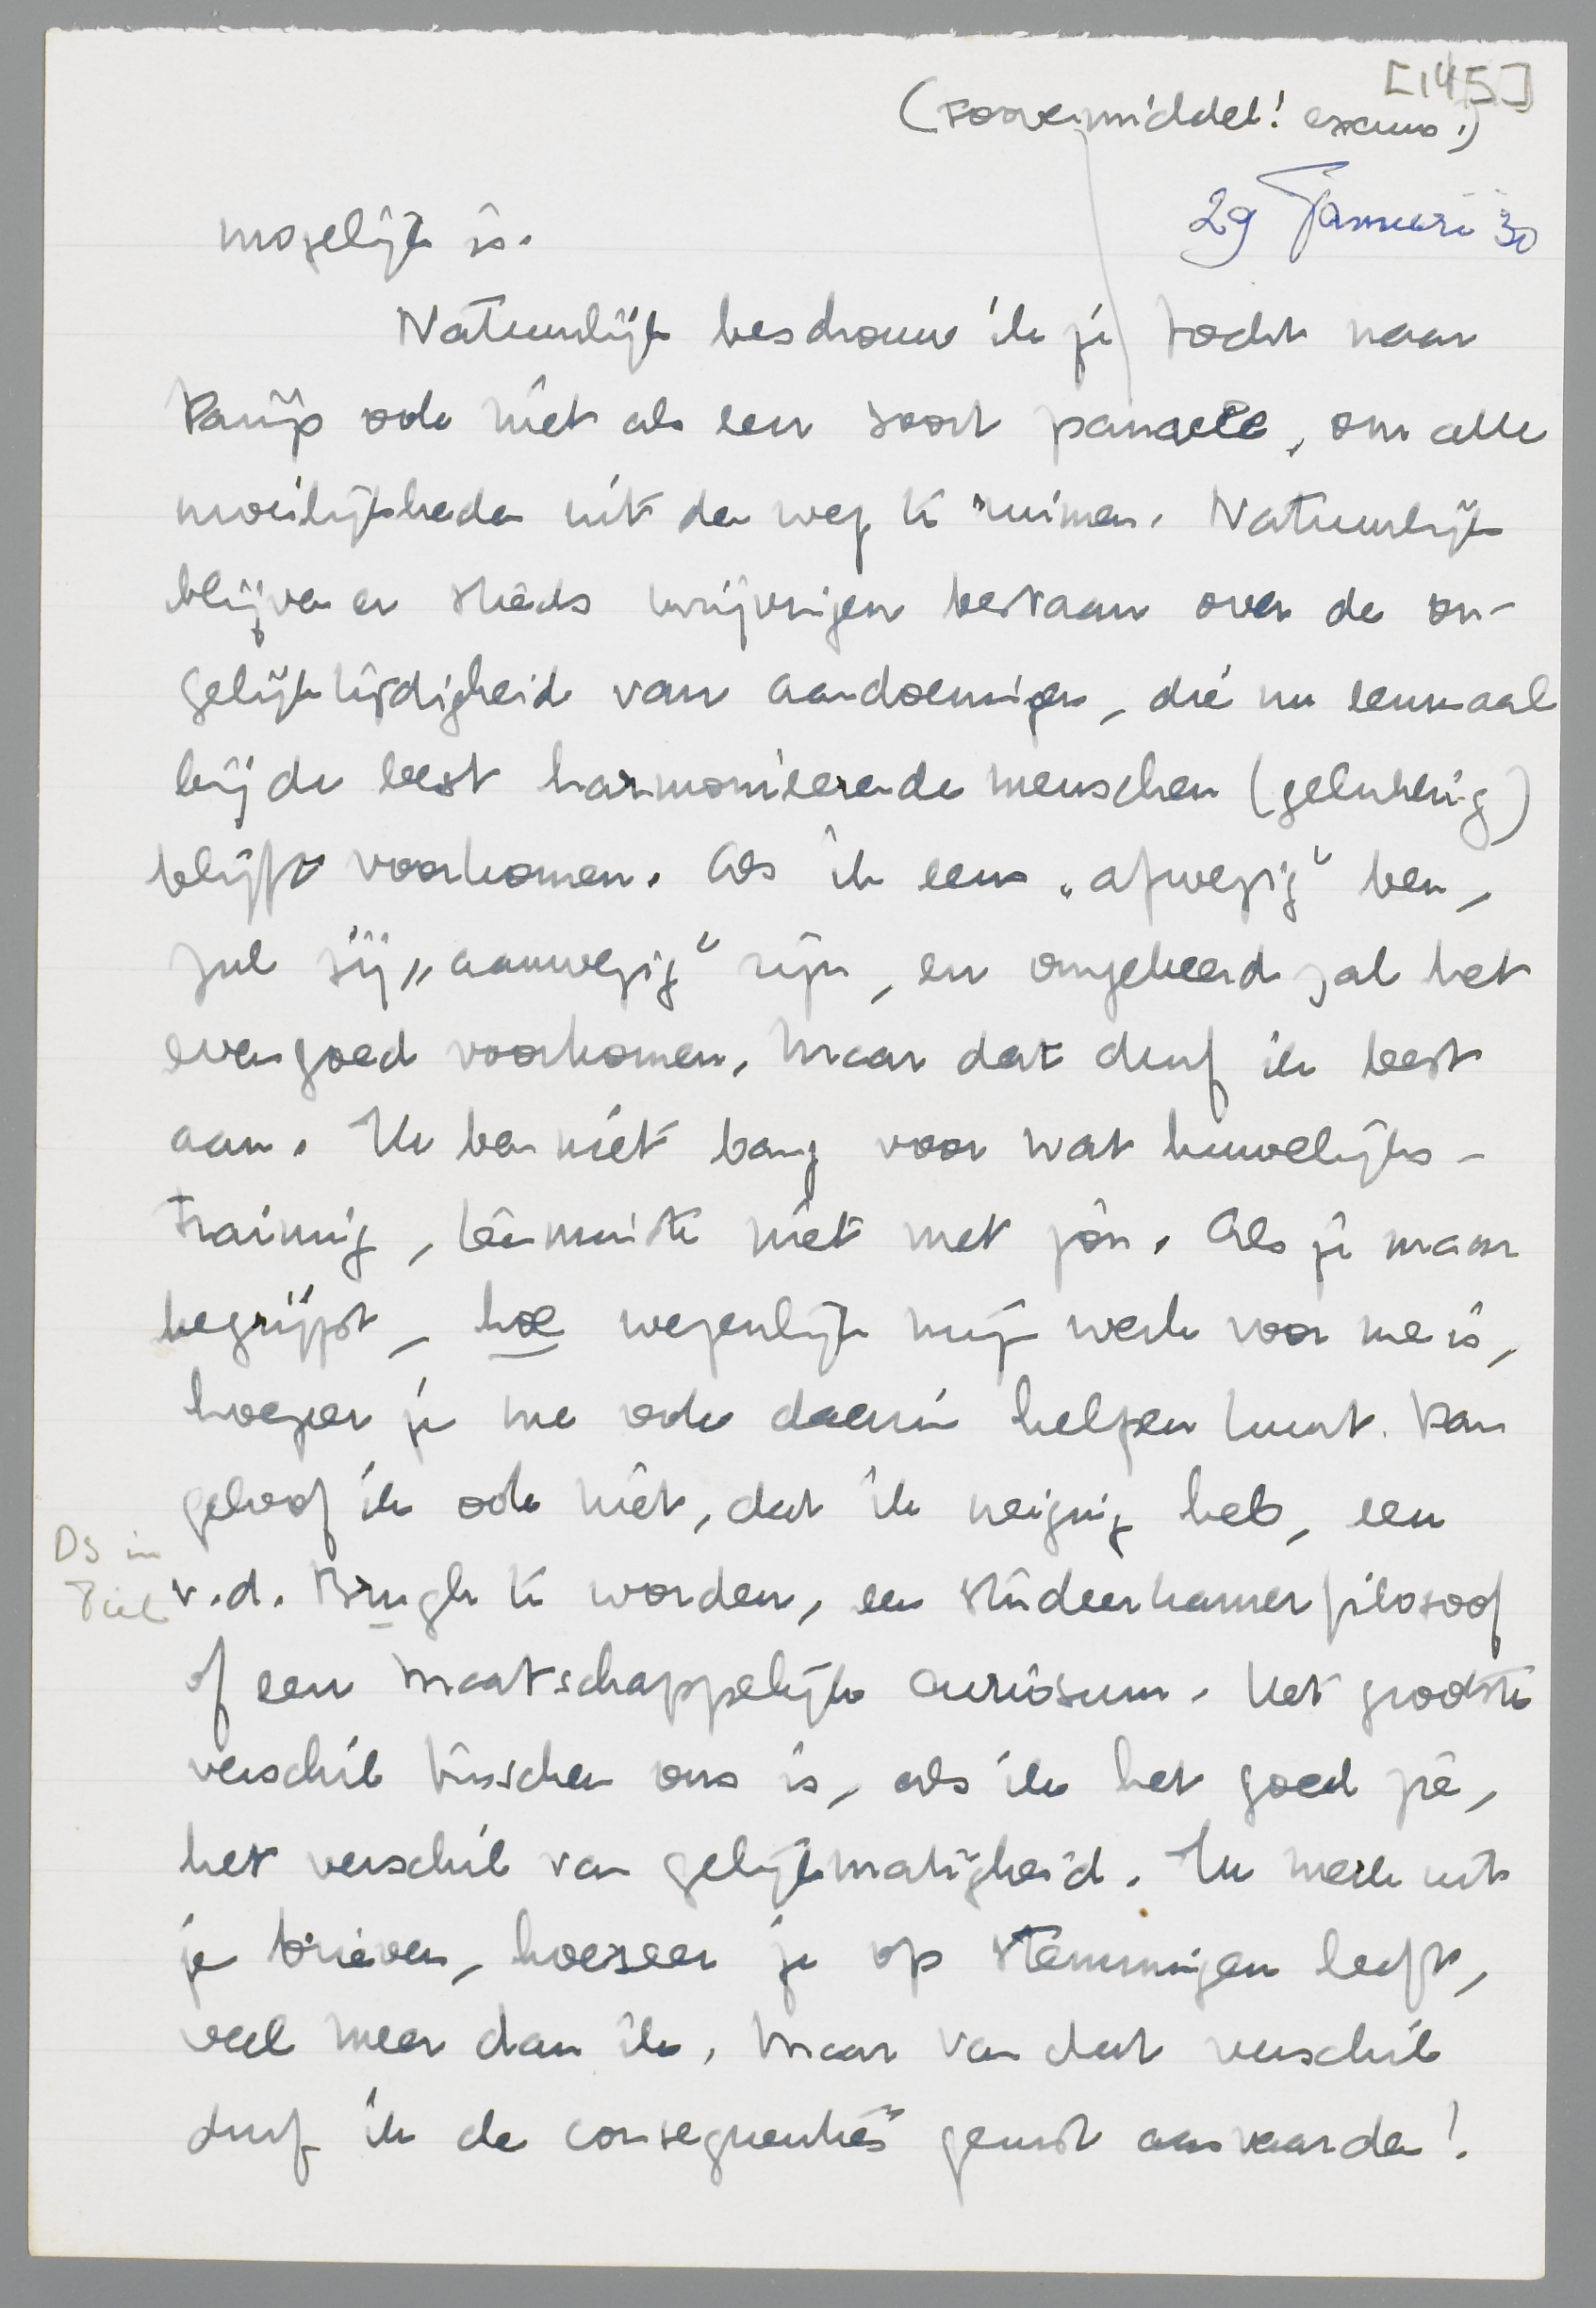 [145]
(toovermiddel! excuus!)
29 Januari '30
mogelijk is.
Natuurlijk beschouw ik je tocht naar
Parijs ook niet als een soort panacee, om alle
moeilijkheden uit den weg te ruimen. Natuurlijk
blijven er steeds wrijvingen bestaan over de on-
gelijktijdigheid van aandoeningen, die nu eenmaal
bij de best harmoniëerende menschen (gelukkig)
blijft voorkomen. Als ik eens „afwezig" ben,
zul jij „aanwezig" zijn, en omgekeerd zal het
evengoed voorkomen. Maar dat durf ik best
aan. Ik ben niet bang voor wat huwelijks-
training, tenminste niet met jou. Als je maar
begrijpt, hoe wezenlijk mijn werk voor me is,
hoezeer je me ook daarin helpen kunt. Dan
geloof ik ook niet, dat ik neiging heb, een
Ds in
Tiel
v.d. Brugh te worden, een studeerkamerfilosoof
of een maatschappelijk curiosum. Het grootste
verschil tusschen ons is, als ik het goed zie,
het verschil van gelijkmatigheid. Ik merk uit
je brieven, hoezeer je op stemmingen leeft,
veel meer dan ik. Maar van dat verschil
durf ik de consequenties gerust aanvaarden!